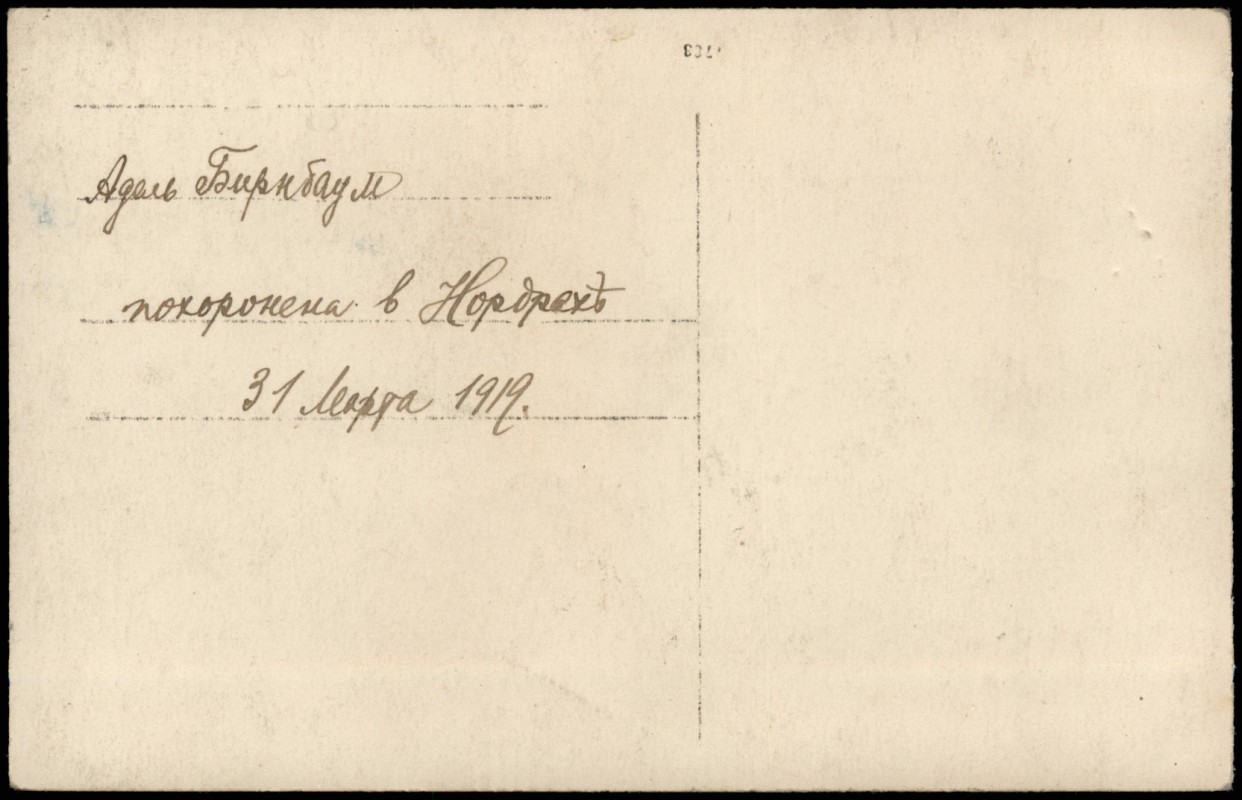 Адель Бирнбаум
похоронена в Нордрахъ
31 Марта 1919.